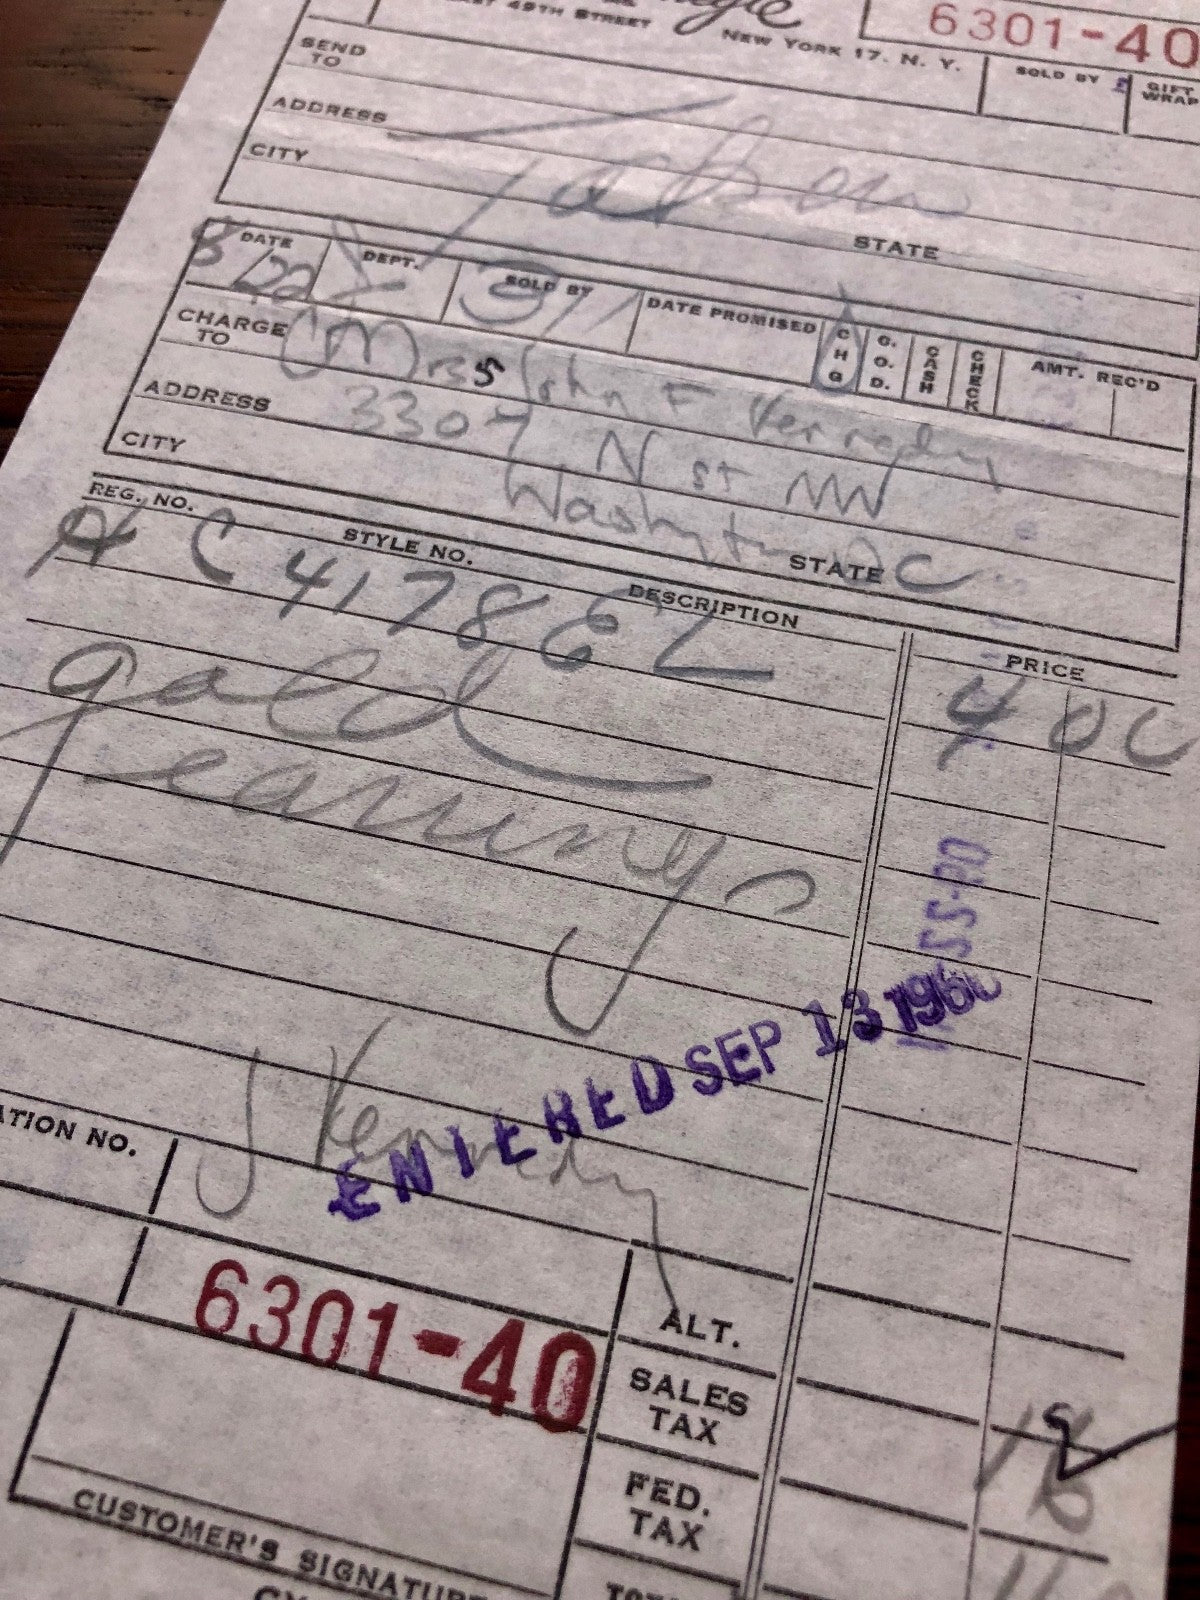 EAST 49TH STREET NEW YORK 17. N. Y.
6301-40
SOLD BY GIFT WRAP
SEND TO
ADDRESS
CITY
Taken
STATE
DATE DEPT. SOLD BY DATE PROMISED CHG C.O.D. CASH CHECK AMT. REC'D
8/22
CHARGE TO Mrs John F Kennedy
ADDRESS 3307 N St NW
CITY Washington DC
STATE
REG. NO. STYLE NO. DESCRIPTION PRICE
C 4178EL 4 00
gold
earrings
ENTERED SEP 13 1960
J Kennedy
ATION NO.
6301-40
ALT.
SALES TAX
FED. TAX
CUSTOMER'S SIGNATURE